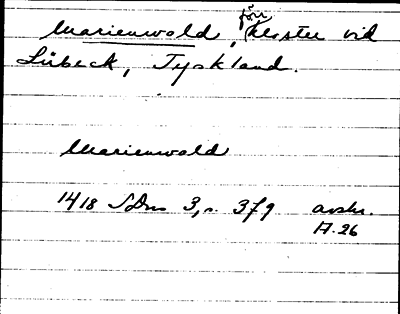 Marienwold, förr kloster vid
Lübeck, Tyskland.
Marienwold
1418 SDns 3, s. 379 avskr.
A. 26